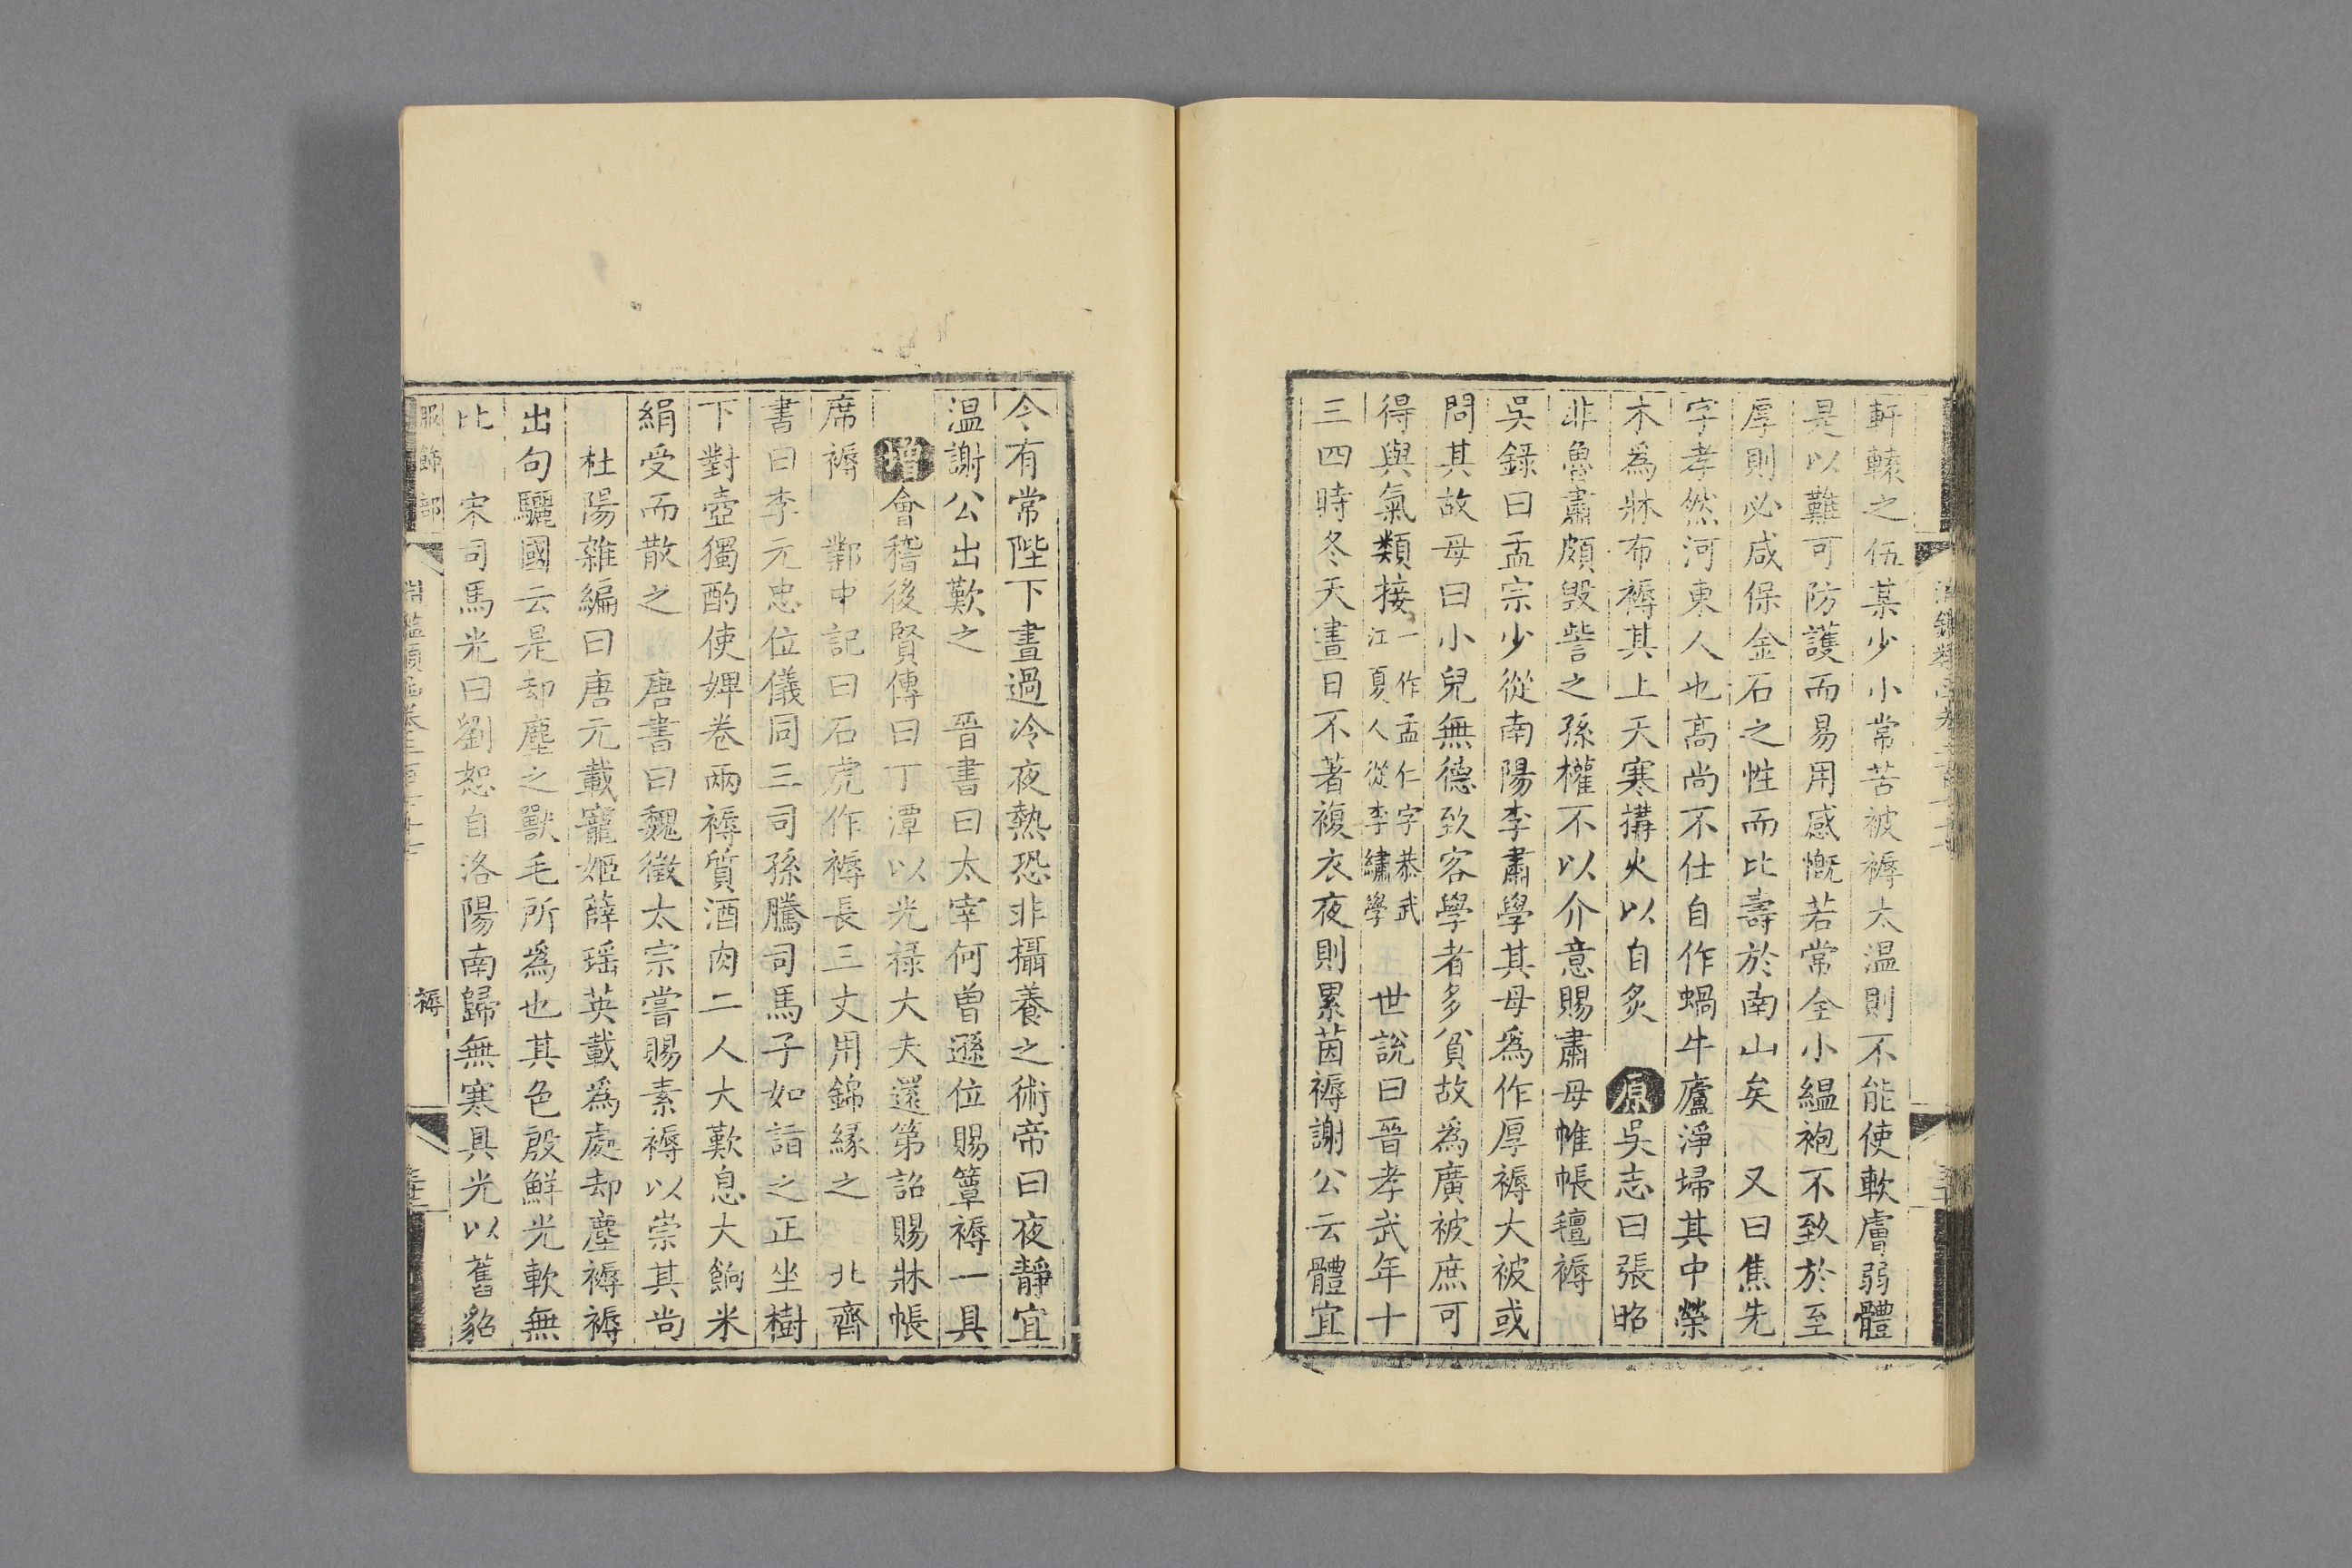 軒轅之伍某少小常苦被褥太温則不能使軟膚弱體
是以難可防護而易用感慨若常全小緼袍不致於至
厚則必咸保金石之性而比壽於南山矣 又曰焦先
字孝然河東人也髙尚不仕自作蝸牛廬淨埽其中榮
木為牀布褥其上天寒搆火以自炙 原吳志曰張昭
非魯肅頗毁訾之孫權不以介意賜肅母帷帳氊褥
吳錄曰孟宗少從南陽李肅學其母爲作厚褥大被或
問其故母曰小兒無德致客學者多貧故為廣被庶可
得與氣類接一作孟仁字恭武江夏人從李繡學 世說曰晉孝武年十
三四時冬天晝日不著複衣夜則累茵褥謝公云體宜
今有常陛下晝過冷夜熱恐非攝養之術帝曰夜靜宜
温謝公出歎之 晉書曰太宰何曾遜位賜簟褥一具
增會稽後賢傳曰丁潭以光禄大夫還第詔賜牀帳
席褥 鄴中記曰石虎作褥長三丈用錦縁之 北齊
書曰李元忠位儀同三司孫騰司馬子如詣之正坐樹
下對壺獨酌使婢卷兩褥質酒肉二人大歎息大餉米
絹受而散之 唐書曰魏徵太宗嘗賜素褥以崇其尚
杜陽雜編曰唐元載寵姬薛瑶英載爲處却塵褥褥
出句驪國云是却塵之獸毛所爲也其色殷鮮光軟無
比 宋司馬光曰劉恕自洛陽南歸無寒具光以舊貂
服飾部 淵鑑類函卷三百七十七 褥